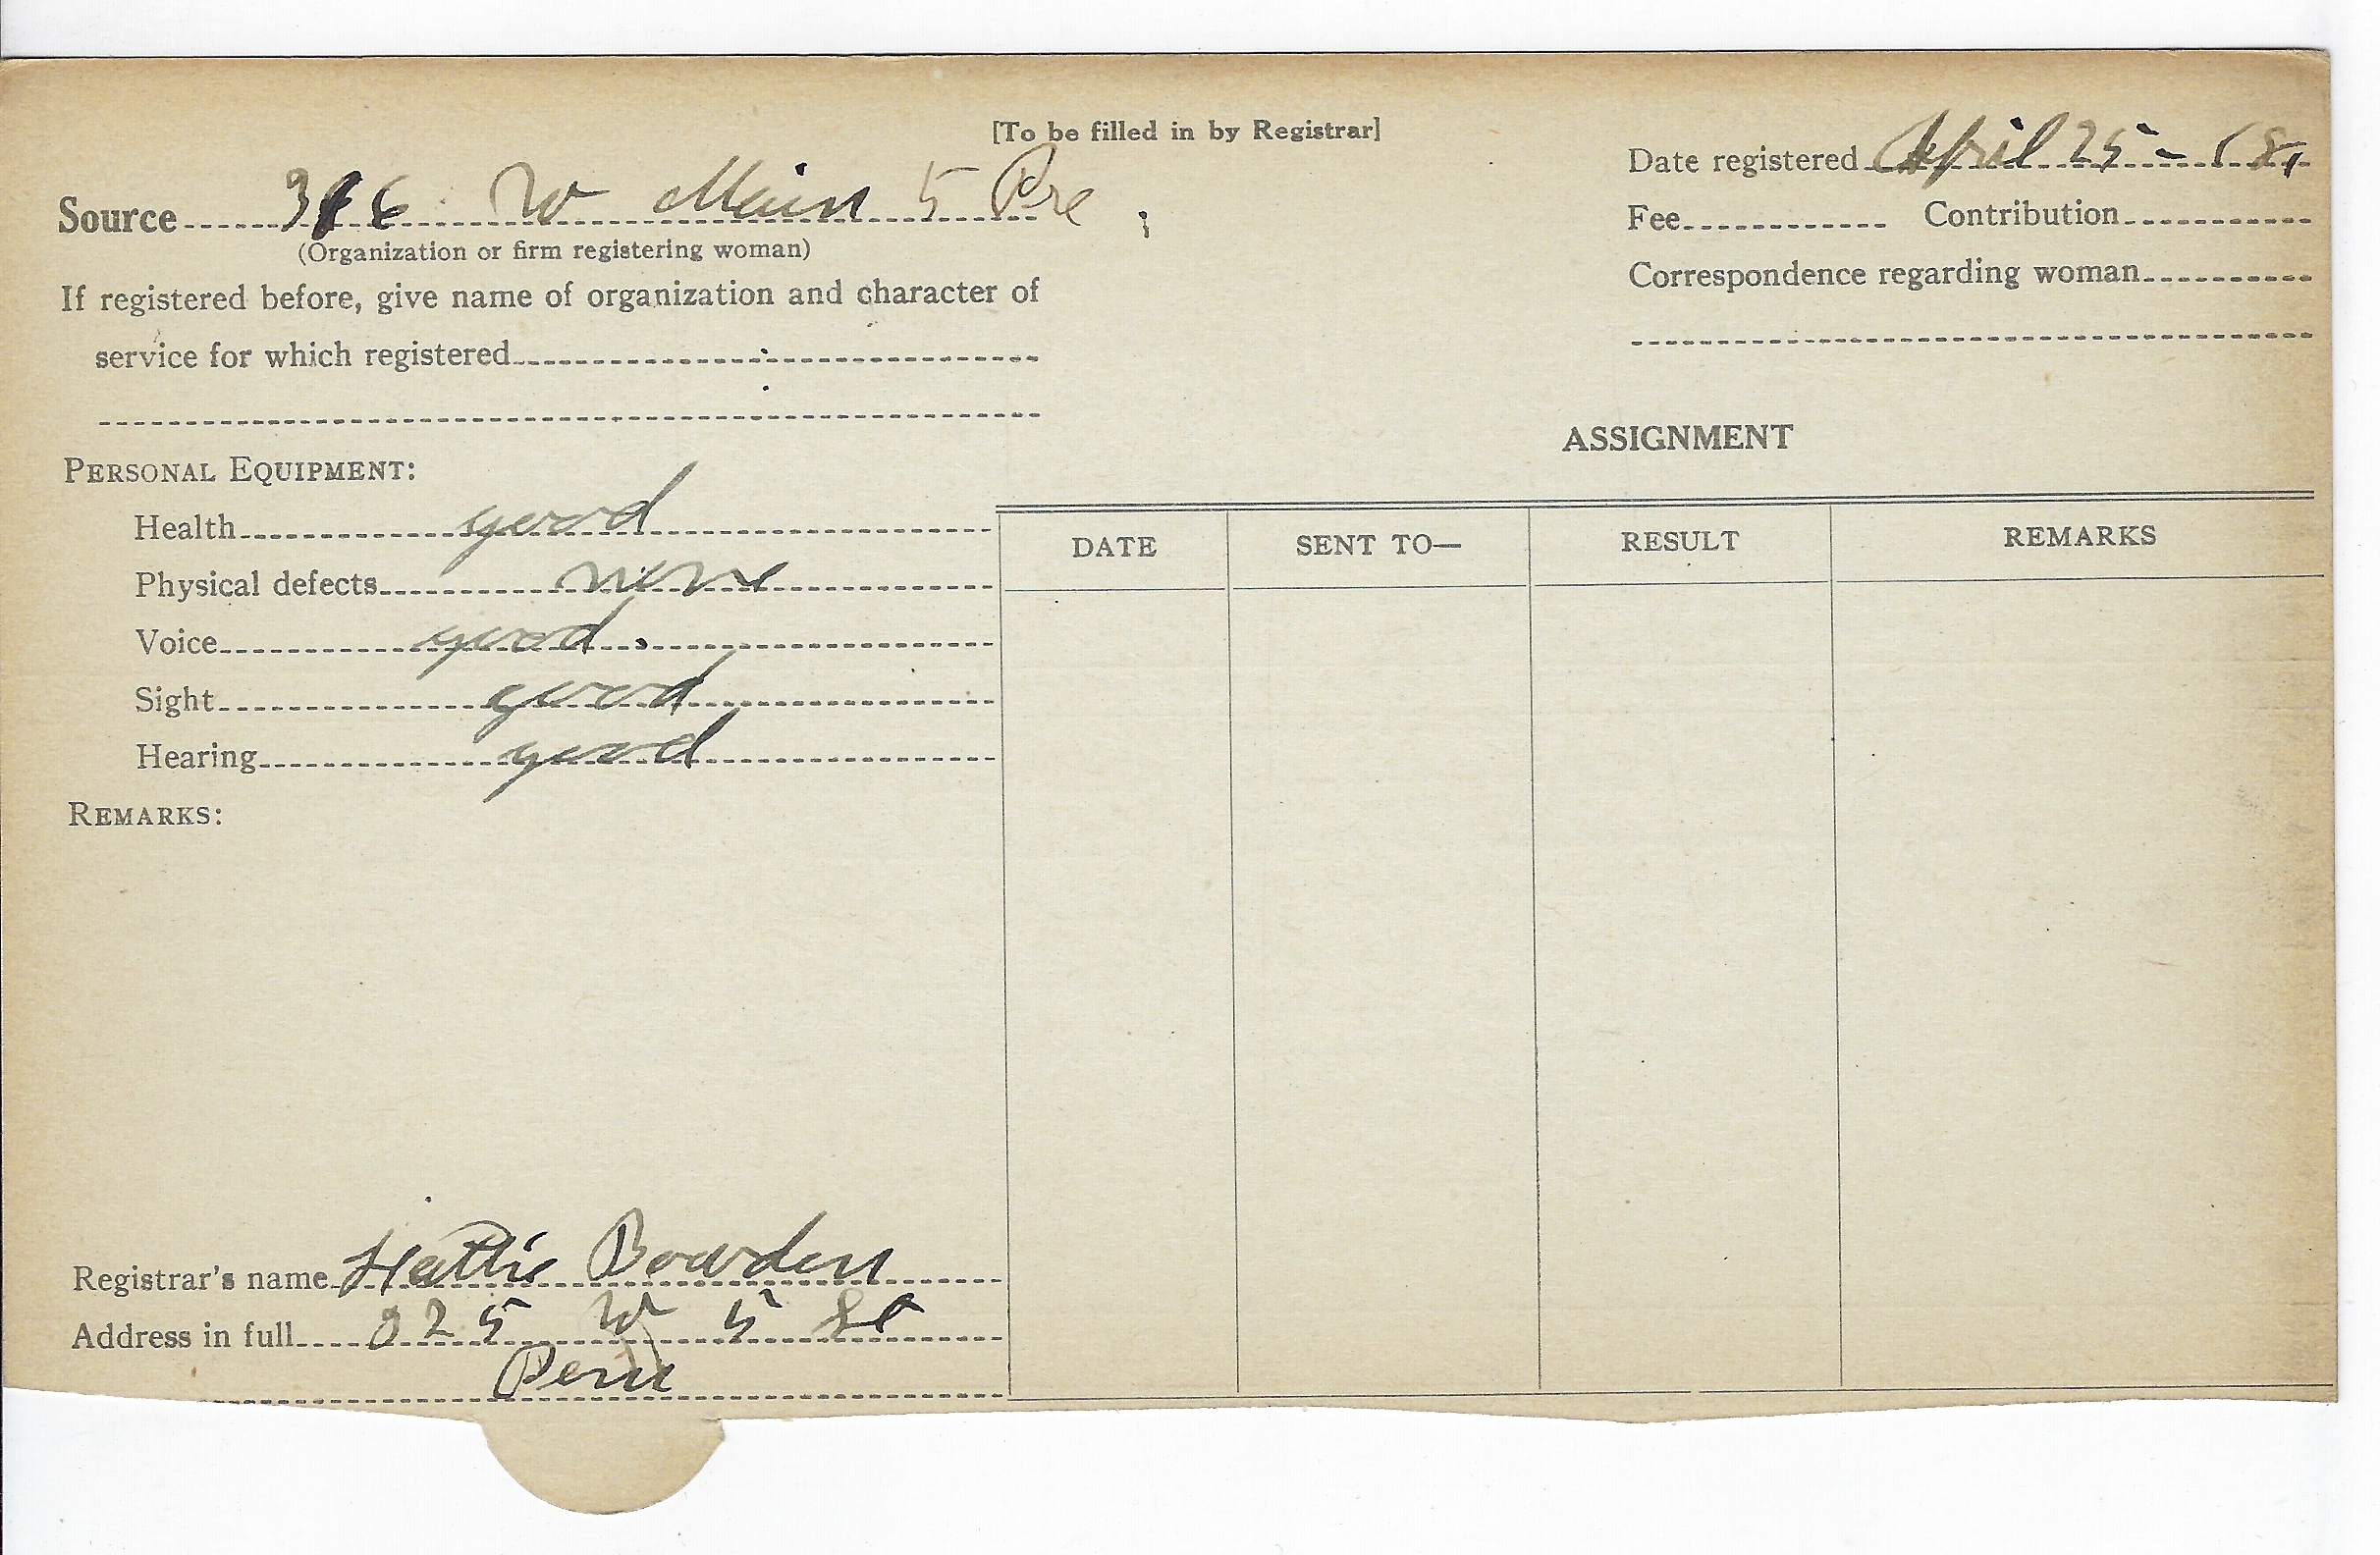 [To be filled in by Registrar]
Date registered April 25 - 18,
Source 316 W Main 5 Pre
(Organization or firm registering woman)
Fee Contribution
If registered before, give name of organization and character of
service for which registered
Correspondence regarding woman
ASSIGNMENT
PERSONAL EQUIPMENT:
Health good
Physical defects none
Voice good.
Sight good
Hearing good
DATE SENT TO— RESULT REMARKS
REMARKS:
Registrar's name Hattie Bowden
Address in full 225 W 5 St
Peru